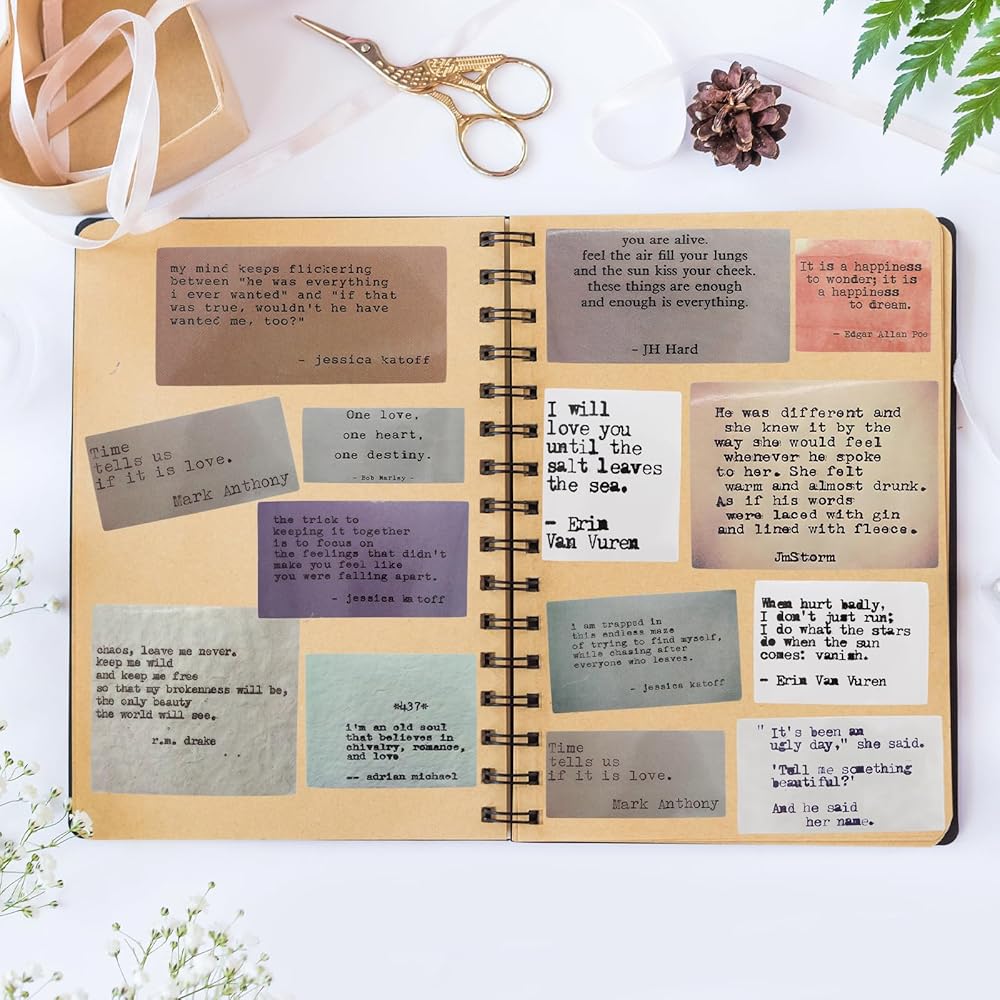 my mind keeps flickering
between "he was everything
i ever wanted" and "if that
was true, wouldn't he have
wanted me, too?"
- jessica katoff
Time
tells us
if it is love.
Mark Anthony
One love,
one heart,
one destiny.
- Bob Marley -
the trick to
keeping it together
is to focus on
the feelings that didn't
make you feel like
you were falling apart.
- jessica katoff
chaos, leave me never.
keep me wild
and keep me free
so that my brokenness will be,
the only beauty
the world will see.
r.m. drake
*437*
i'm an old soul
that believes in
chivalry, romance,
and love
-- adrian michael
you are alive.
feel the air fill your lungs
and the sun kiss your cheek.
these things are enough
and enough is everything.
- JH Hard
It is a happiness
to wonder; it is
a happiness
to dream.
- Edgar Allan Poe
I will
love you
until the
salt leaves
the sea.
- Erin
Van Vuren
He was different and
she knew it by the
way she would feel
whenever he spoke
to her. She felt
warm and almost drunk.
As if his words
were laced with gin
and lined with fleece.
JmStorm
i am trapped in
this endless maze
of trying to find myself,
while chasing after
everyone who leaves.
- jessica katoff
When hurt badly,
I don't just run;
I do what the stars
do when the sun
comes: vanish.
- Erin Van Vuren
Time
tells us
if it is love.
Mark Anthony
" It's been an
ugly day," she said.
'Tell me something
beautiful?'
And he said
her name.